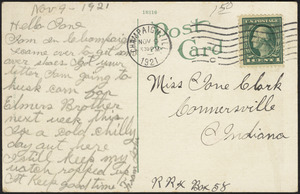 Nov 9 - 1921
Hello Cone
I am in Champaign
came over to get some
over shoes Got your
letter I am going to
husk corn for
Elmers Brother
next week this
is a cold chilly
day out here
I still keep my
watch it
Keep good time
150
Post
Card
CHAMPAIGN
NOV 9
1921
Miss Cone Clark
Connersville
Indiana
RR 4 Box 58